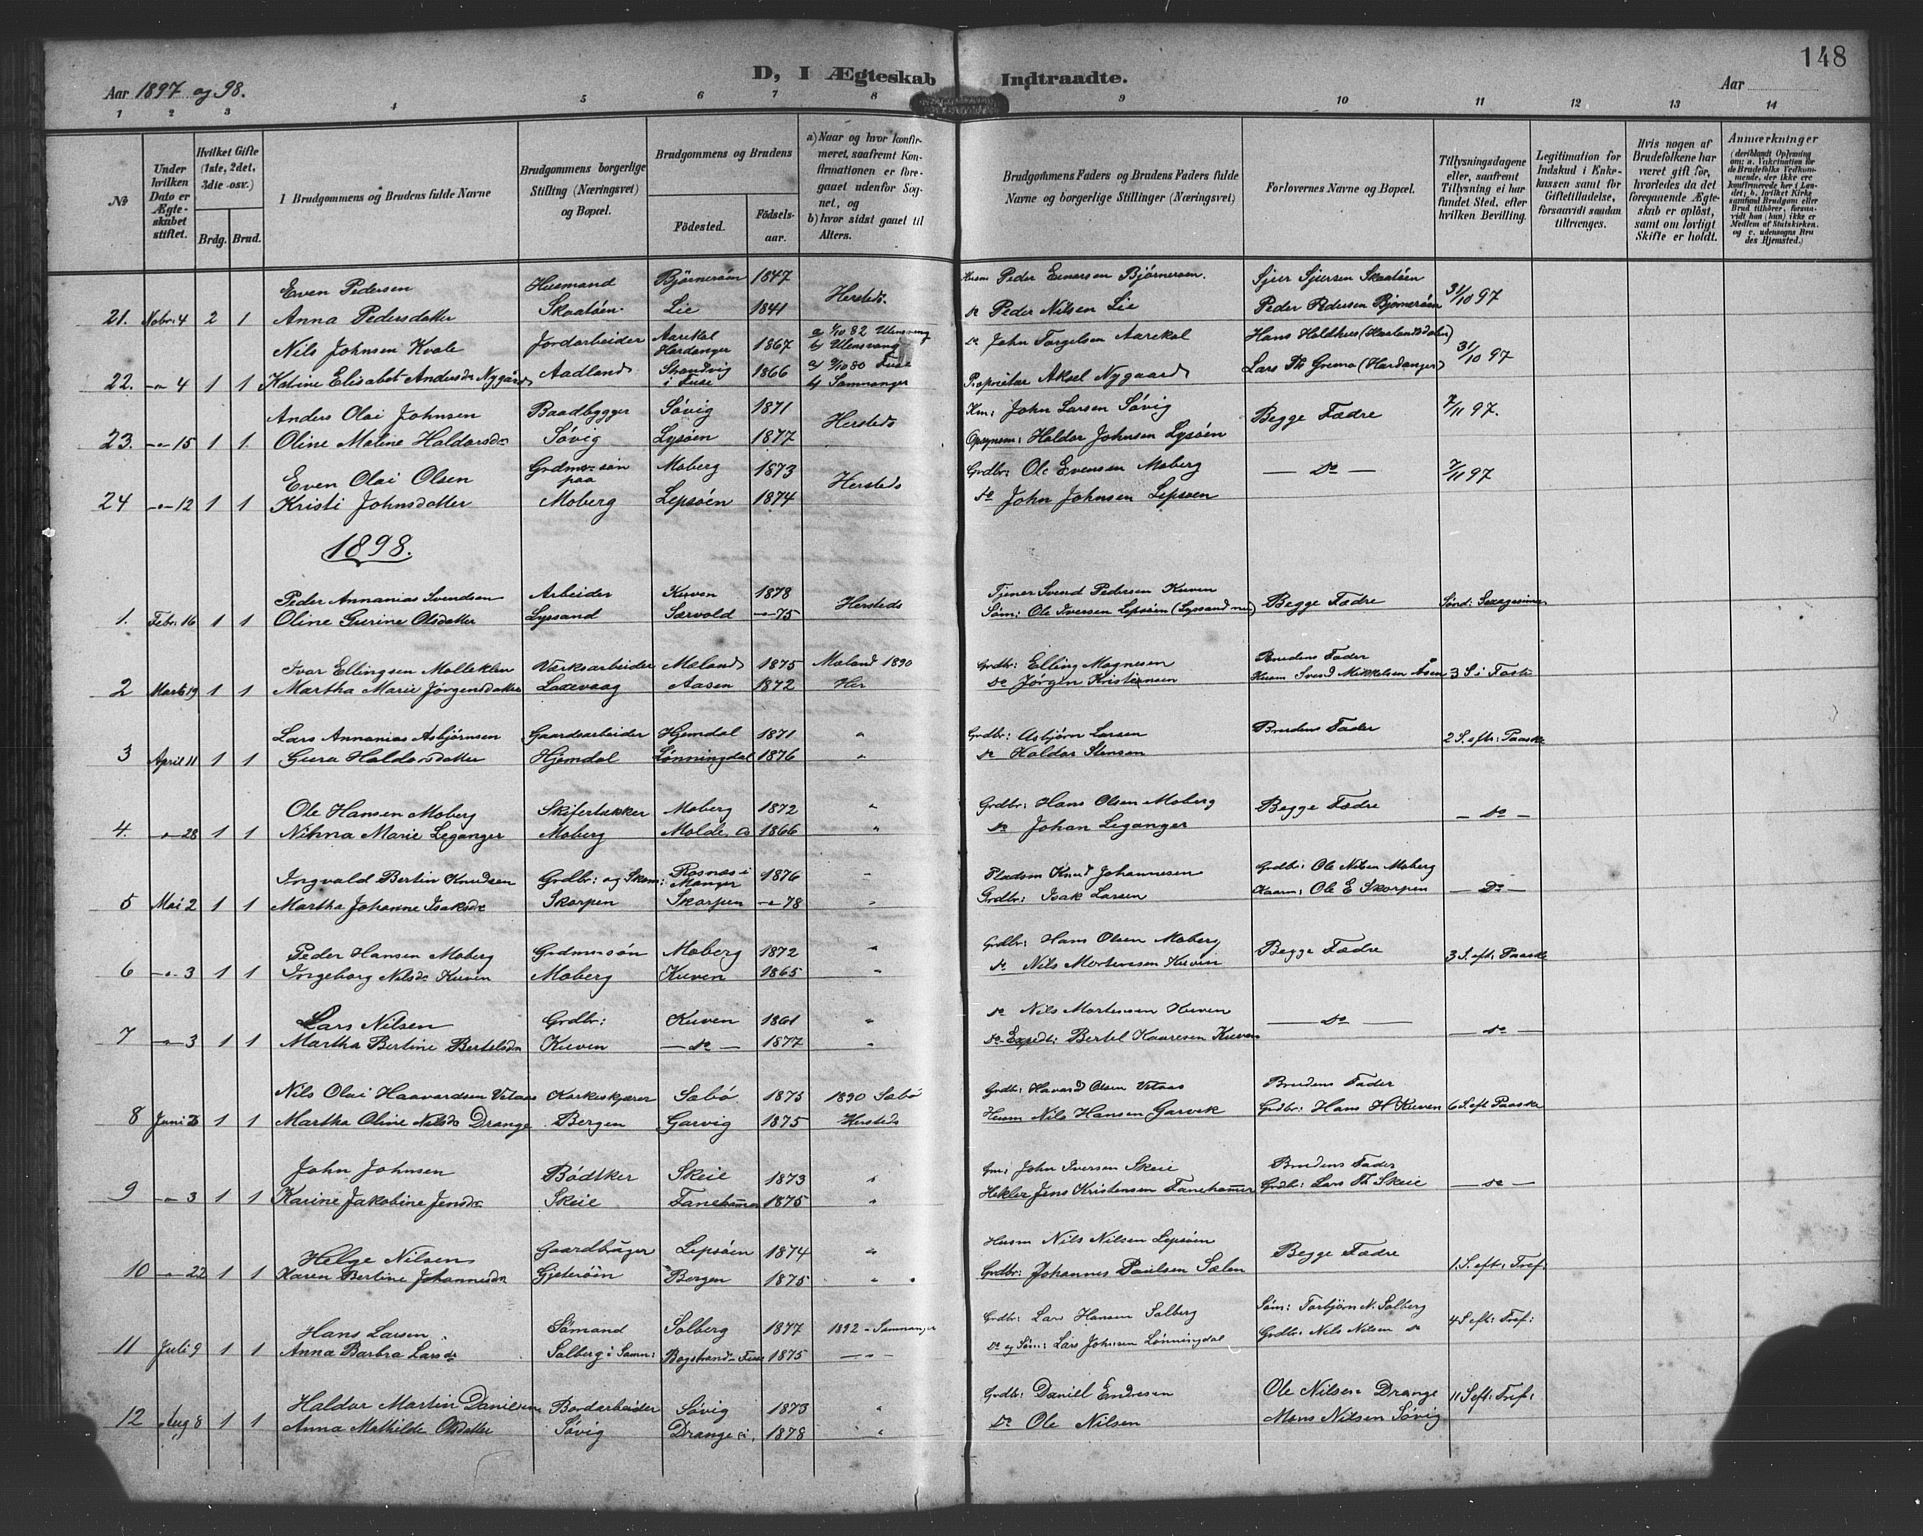 148
D, I Ægteskab Indtraadte.
Aar 1897 og 98. Aar
1 2 3 4 5 6 7 8 9 10 11 12 13 14
No
Under hvilken Dato er Ægteskabet stiftet.
Hvilket Gifte (1ste, 2det, 3die osv.)
Brdg. Brud.
I Brudgommens og Brudens fulde Navne
Brudgommens borgerlige Stilling (Næringsvei) og Bopæl.
Brudgommens og Brudens
Fødested. Fødselsaar.
a) Naar og hvor konfirmeret, saafremt Konfirmationen er foregaaet udenfor Sognet, og
b) hvor sidst gaaet til Alters.
Brudgommens Faders og Brudens Faders fulde Navne og borgerlige Stillinger (Næringsvei)
Forlovernes Navne og Bopæl.
Tillysningsdagene eller, saafremt Tillysning ei har fundet Sted, efter hvilken Bevilling.
Legitimation for Indskud i Enkekassen samt for Giftetilladelse, forsaavidt saadan tiltrænges.
Hvis nogen af Brudefolkene har været gift før, hvorledes da det foregaaende Ægteskab er opløst, samt om lovligt Skifte er holdt.
Anmærkninger
Even Pedersen Husmand Bjørnerøen 1847 Husm Peder Einarsen Bjørnerøen. Sjur Sjursen Skaatøen
21. Nobr. 4 2 1 Anna Pedersdatter Skaatøen Lie 1841 Hersteds. do Peder Nilsen Lie Peder Pedersen Bjørnerøen 31/10 97
Nils Johnsen Kvale Jordarbeider Aarekol Hardanger 1867 a 1/10 82 Ulensvang b) Ulensvang do John Torgelsen Aarekol Hans Holdhus (Hardanger)
22. -"- 4 1 1 Katine Elisabet Andersdr Nygård Aadland Strandvig i Fuse 1866 a) 9/10 80 Fuse b) Samnanger Proprietær Aksel Nygaard Lars Th Grimo (Hardanger) 31/10 97
Anders Olai Johnsen Baadbygger Søvig 1871 Hersteds Km: John Larsen Søvig Begge Fædre 7/11 97.
23. -"- 15 1 1 Oline Maline Haldorsdr Søvig Lysøen 1877 Opsynsm: Haldor Johnsen Lysøen
Even Olai Olsen Grdmrsøn paa Moberg 1873 Hersteds Grdbr: Ole Evensen Moberg — do — 7/11 97
24 -"- 12 1 1 Kristi Johnsdatter Moberg Lepsøen 1874 do John Johnsen Lepsøen
1898.
Peder Annanias Svendsen Arbeider Kuven 1878 Hersteds Tjener Svend Pedersen Kuven Begge Fædre Sønd: Sexagesima
1. Febr. 16 1 1 Oline Gurine Olsdatter Lyssand Særvold -"- 75 Søm: Ole Iversen Lepsøen
Ivar Ellingsen Molleklev Værksarbeider Mæland 1875 Mæland 1890 Grdbr: Elling Magnesen Brudens Fader
2 Marts 19 1 1 Martha Marie Jørgensdatter Laxevaag Aasen 1872 Her do Jørgen Kristensen Husm Svend Mikkelsen Åsen 3 S i Faste
Lars Annanias Asbjørnsen Gaardsarbeider Hjemdal 1871 " Grdbr: Asbjørn Larsen Brudens Fader
3 April 11 1 1 Guro Haldorsdatter Hjemdal Lønningdal 1876 " do Haldor Stensen 2 S. eft: Paaske
Ole Hansen Moberg Skifertækker Moberg 1872 " Grdbr: Hans Olsen Moberg Begge Fædre — do —
4. -"- 28 1 1 Nikna Marie Leganger Moberg Molde 1866 " do Johan Leganger
Ingvald Bertin Knudsen Grdbr: og Skom: Rosnæs i Manger 1876 " Pladsm Knud Johannesen Grdbr: Ole Nilsen Moberg
5 Mai 2 1 1 Martha Johanne Isaksdr Skorpen Skorpen -"- 78 " Grdbr: Isak Larsen Kaarm: Ole E Skorpen — Do —
Peder Hansen Moberg Grdmrsøn Moberg 1872 " Grdbr: Hans Olsen Moberg Begge Fædre 3 S. eft: Paaske
6 -"- 3 1 1 Ingeborg Nilsdr Kuven Moberg Kuven 1865 " do Nils Mortensen Kuven
Lars Nilsen Grdbr: Kuven 1861 " do Nils Mortensen Kuven — do —
7 -"- 3 1 1 Martha Bertine Bertelsdr Kuven — do — 1877 " do Expedt: Bertel Kaaresen Kuven — do —
Nils Olai Haavardsen Vetaas Korkeskjærer Sæbø 1875 1890 Sæbø Grdbr: Havard Olsen Vetaas Brudens Fader
8 Juni 1 1 Martha Oline Nilsdr Drange Bergen Garvig 1875 Hersteds Husm Nils Hansen Garvik Grdbr: Hans H Kuven 6 S. eft Paaske
John Johnsen Bødtker Skeie 1873 " Gm: John Iversen Skeie Brudens Fader
9 -"- 3 1 1 Karine Jakobine Jensdr Skeie Fanehammer 1875 " Hekler Jens Kristensen Fanehammer Grdbr: Lars Th Skeie — do —
Helge Nilsen Gaardbruger Lepsøen 1874 " Husm Nils Nilsen Lepsøen Begge Fædre 1 S. eft: Tref.
10 -"- 22 1 1 Karen Bertine Johannesdr Gjeterøin Bergen 1875 " " Grdbr: Johannes Paulsen Sælen
Hans Larsen Sømand Solberg 1877 1892 - Samnanger Grdbr: Lars Hansen Solberg Søm: Torbjørn N. Solberg 4 S eft: Tref:
11 Juli 9 1 1 Anna Barbra Larsdr Solberg i Samn: Bogstrand - Fuse 1875 — " — do og Søm: Lars Johnsen Lønningdal Grdbr: Nils Nilsen do
Haldor Martin Danielsen Bordarbeider Søvig 1873 " Grdbr: Daniel Endresen Ole Nilsen Drange 11 S eft: Tref:
12 Aug 8 1 1 Anna Mathilde Olsdatter Søvig Drange 1878 " do Ole Nilsen Mons Nilsen Søvig